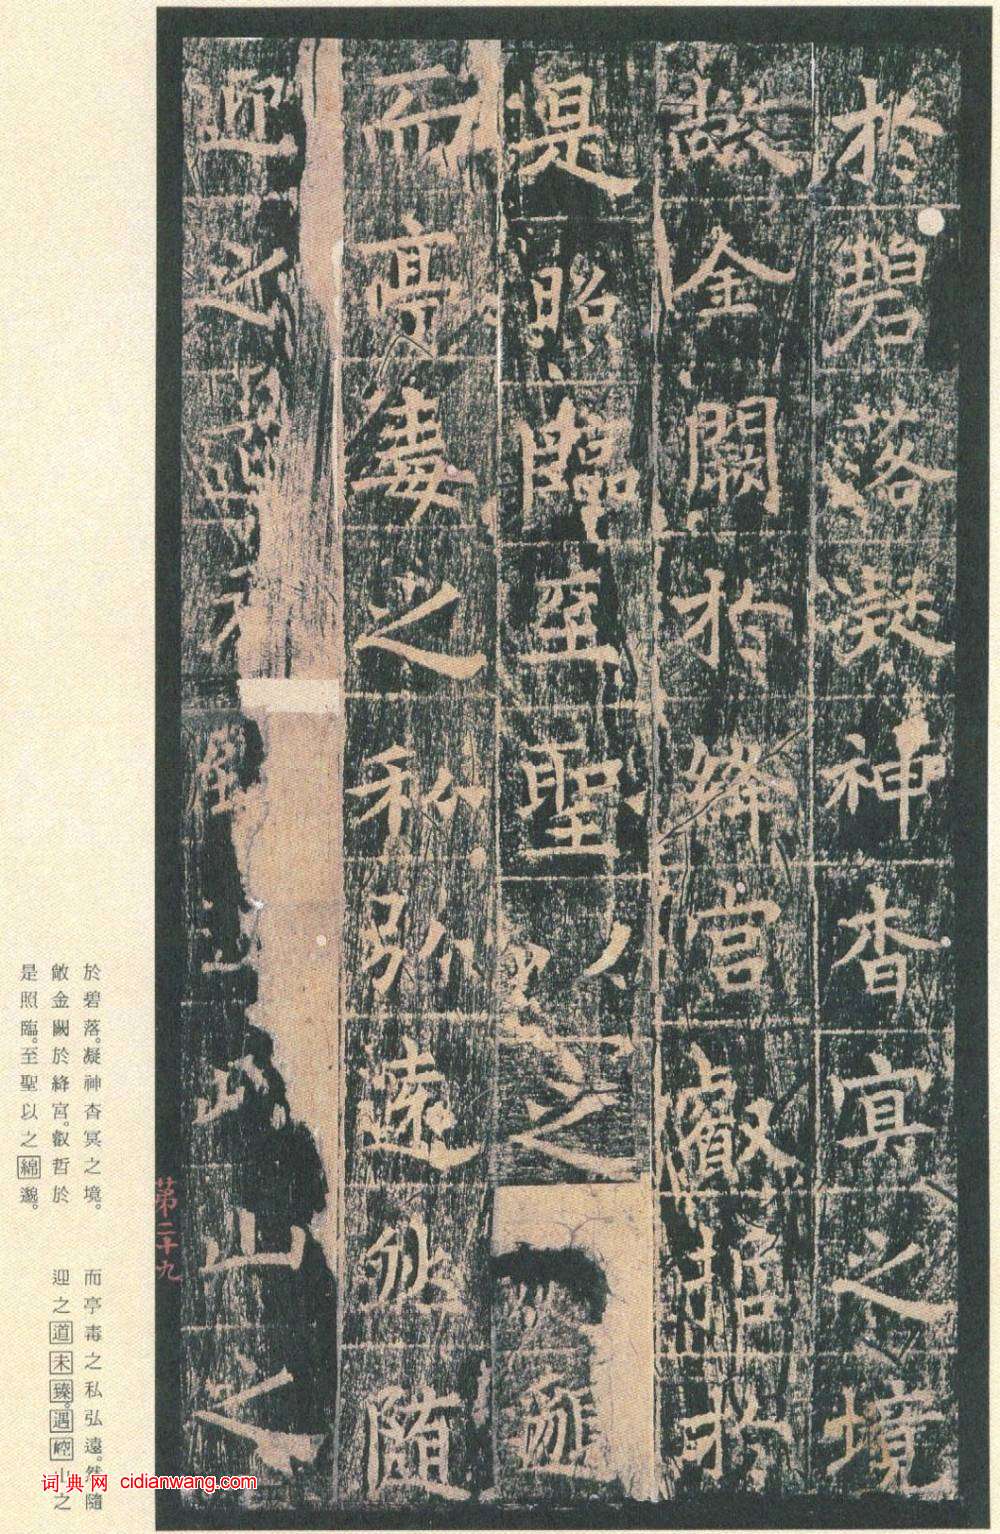 於碧落凝神杳冥之境
敞金闕於絳宮叡哲於
是照臨至聖以之
而亭毒之私弘遠然隨
迎之道未山之
第二十九
於碧落。凝神杳冥之境。
敞金闕於絳宮。叡哲於
是照臨。至聖以之綿邈。
而亭毒之私弘遠。然隨
迎之道未臻。遇崆山之
词典网 cidianwang.com